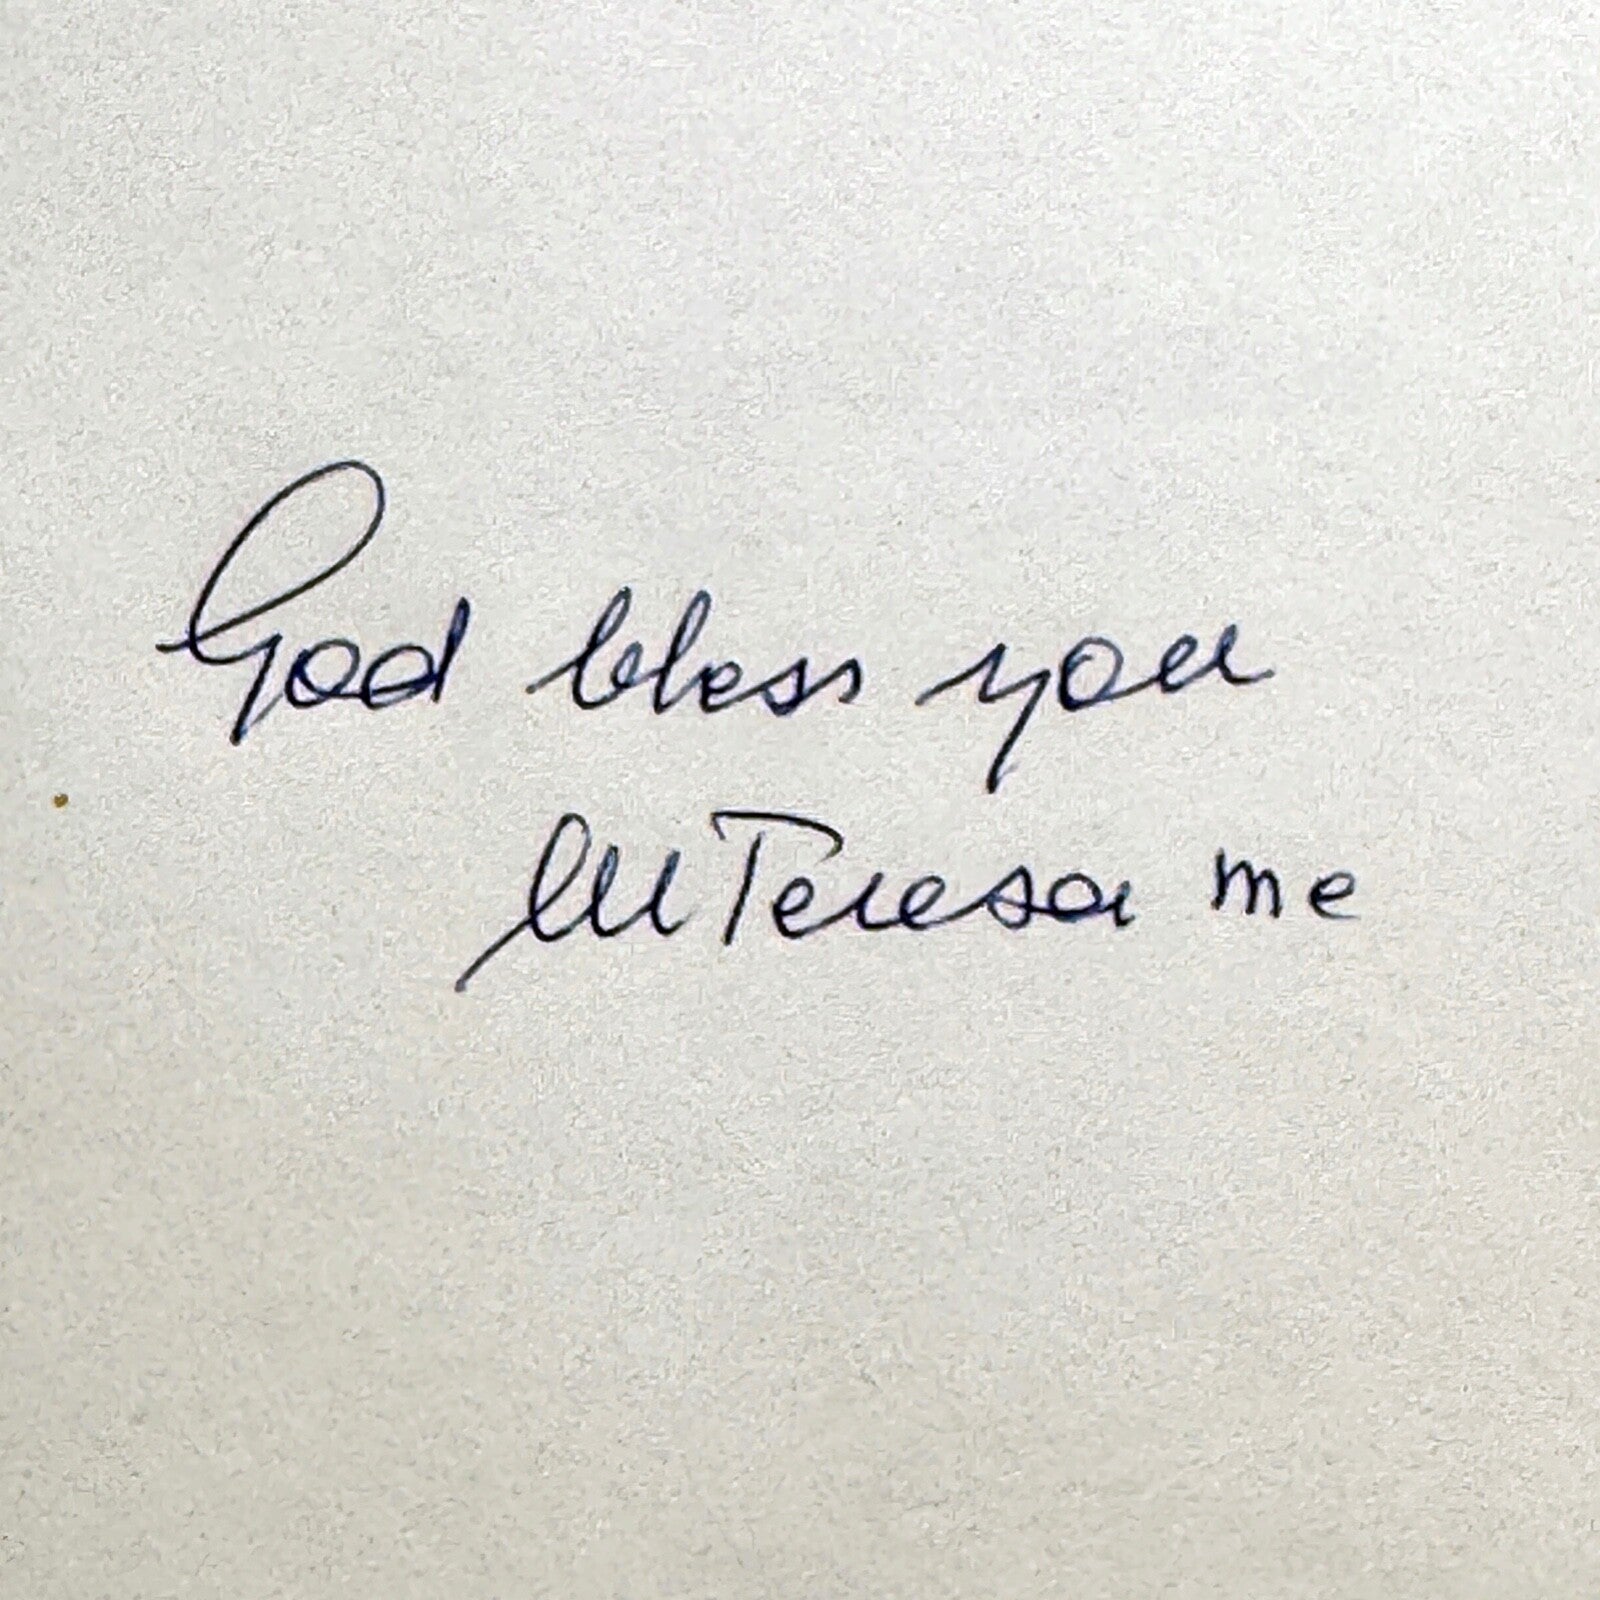 God bless you
M Teresa mc